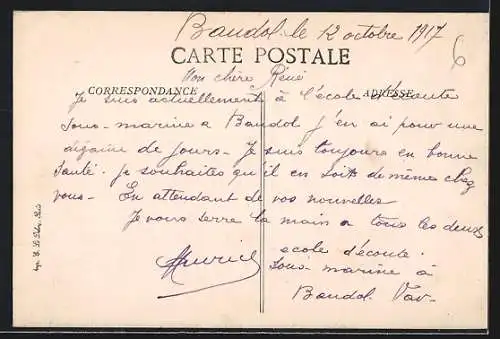 Bandol. le 12 octobre 1917
6
CARTE POSTALE
Mon chère René
CORRESPONDANCE
ADRESSE
Je suis actuellement à l'école d'écoute
sous-marine a Bandol j'en ai pour une
dizaine de jours. Je suis toujours en bonne
santé. je souhaites qu'il en soit de même chez
vous. En attendant de vos nouvelles
Je vous serre la main a tous les deux
Maurice
ecole d'écoute.
sous-marine à
Bandol. Var.
Imp. E. Le Deley, Paris